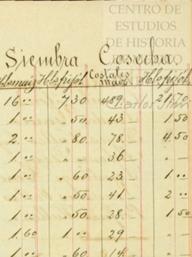 CENTRO DE
ESTUDIOS
DE HISTORIA
Siembra Cosecha
Hlsmaiz Hlsfrijol Costales Maiz Hlsfrijol
16 " 7 30 489 21 70
1 " " 50 43 1 50
2 " " 80 78 4 50
1 " " 36 "
1 " " 60 23 1 "
1 " " 50 41 2 "
1 " " 50 28 1 50
1 60 1 " 29 "
" 60 14